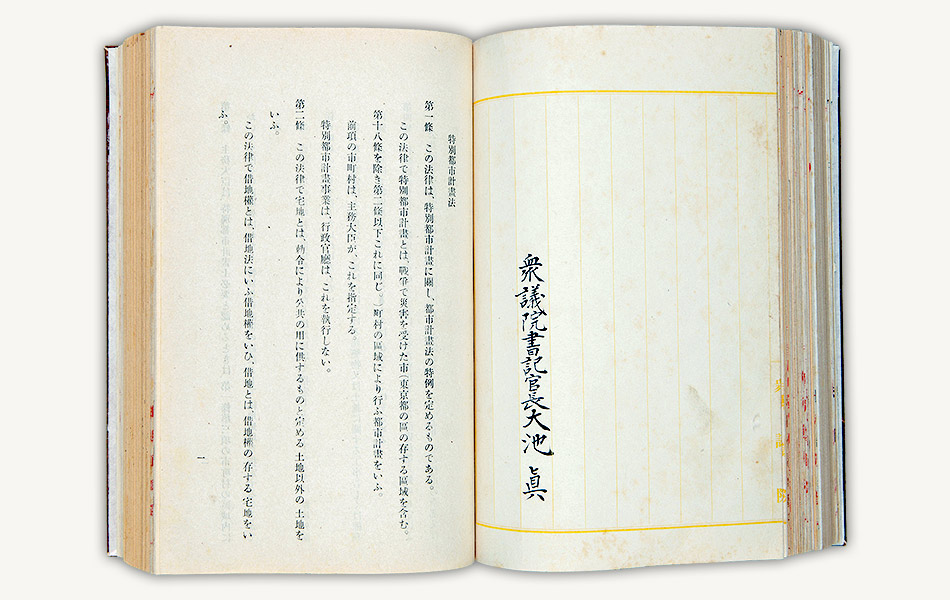 衆議院書記官長大池眞
特別都市計畫法
第一條　この法律は、特別都市計畫に關し、都市計畫法の特例を定めるものである。
この法律で特別都市計畫とは、戰爭で災害を受けた市(東京都の區の存する區域を含む。
第十八條を除き第二條以下これに同じ。)町村の區域により行ふ都市計畫をいふ。
前項の市町村は、主務大臣が、これを指定する。
特別都市計畫事業は、行政官廳は、これを執行しない。
第二條　この法律で宅地とは、勅令により公共の用に供するものと定める土地以外の土地を
いふ。
この法律で借地權とは、借地法にいふ借地權をいひ、借地とは、借地權の存する宅地をい
ふ。
一